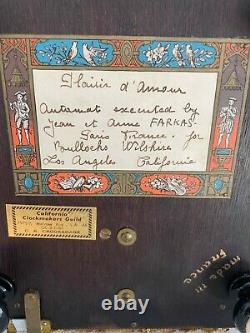 Plaisir d'amour
Automat executed by
Jean et Anne FARKAS.
Paris France. for
Bullocks Wilshire
Los Angeles California
California
Clockmakers Guild
made in
France